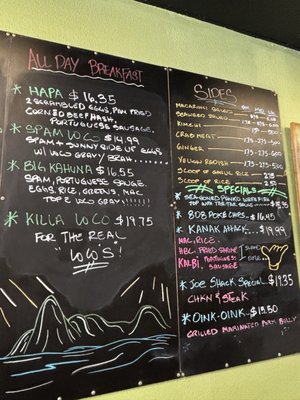 ALL DAY BREAKFAST
* HAPA $16.35
2 SCRAMBLED EGGS, PAN FRIED
CORNED BEEF HASH,
PORTUGUESE SAUSAGE.
* SPAM LOCO $14.99
SPAM + SUNNY SIDE UP EGGS
W/ LOCO GRAVY/ BRAH......
* BIG KAHUNA $16.55
SPAM, PORTUGUESE SAUGE.
EGGS, RICE, GREENS, MAC,
TOP 2 LOCO GRAVY!!!!!!
* KILLA LOCO $19.75
FOR THE REAL
LOCO'S!
SIDES
MACARONI SALAD
SEAWEED SALAD
KIMCHI
CRAB MEAT
GINGER
YELLOW RADISH
SCOOP OF GARLIC RICE
SCOOP OF RICE
SPECIALS
* 808 POKE CAKES. $16.95
* KANAK ATTACK. $19.99
MAC, RICE,
KALBI, PORTUGUESE
SAUSAGE
* JOE SHACK SPECIAL $19.35
CHKN & STEAK
* OINK-OINK. $15.50
GRILLED MARINATED PORK BELLY